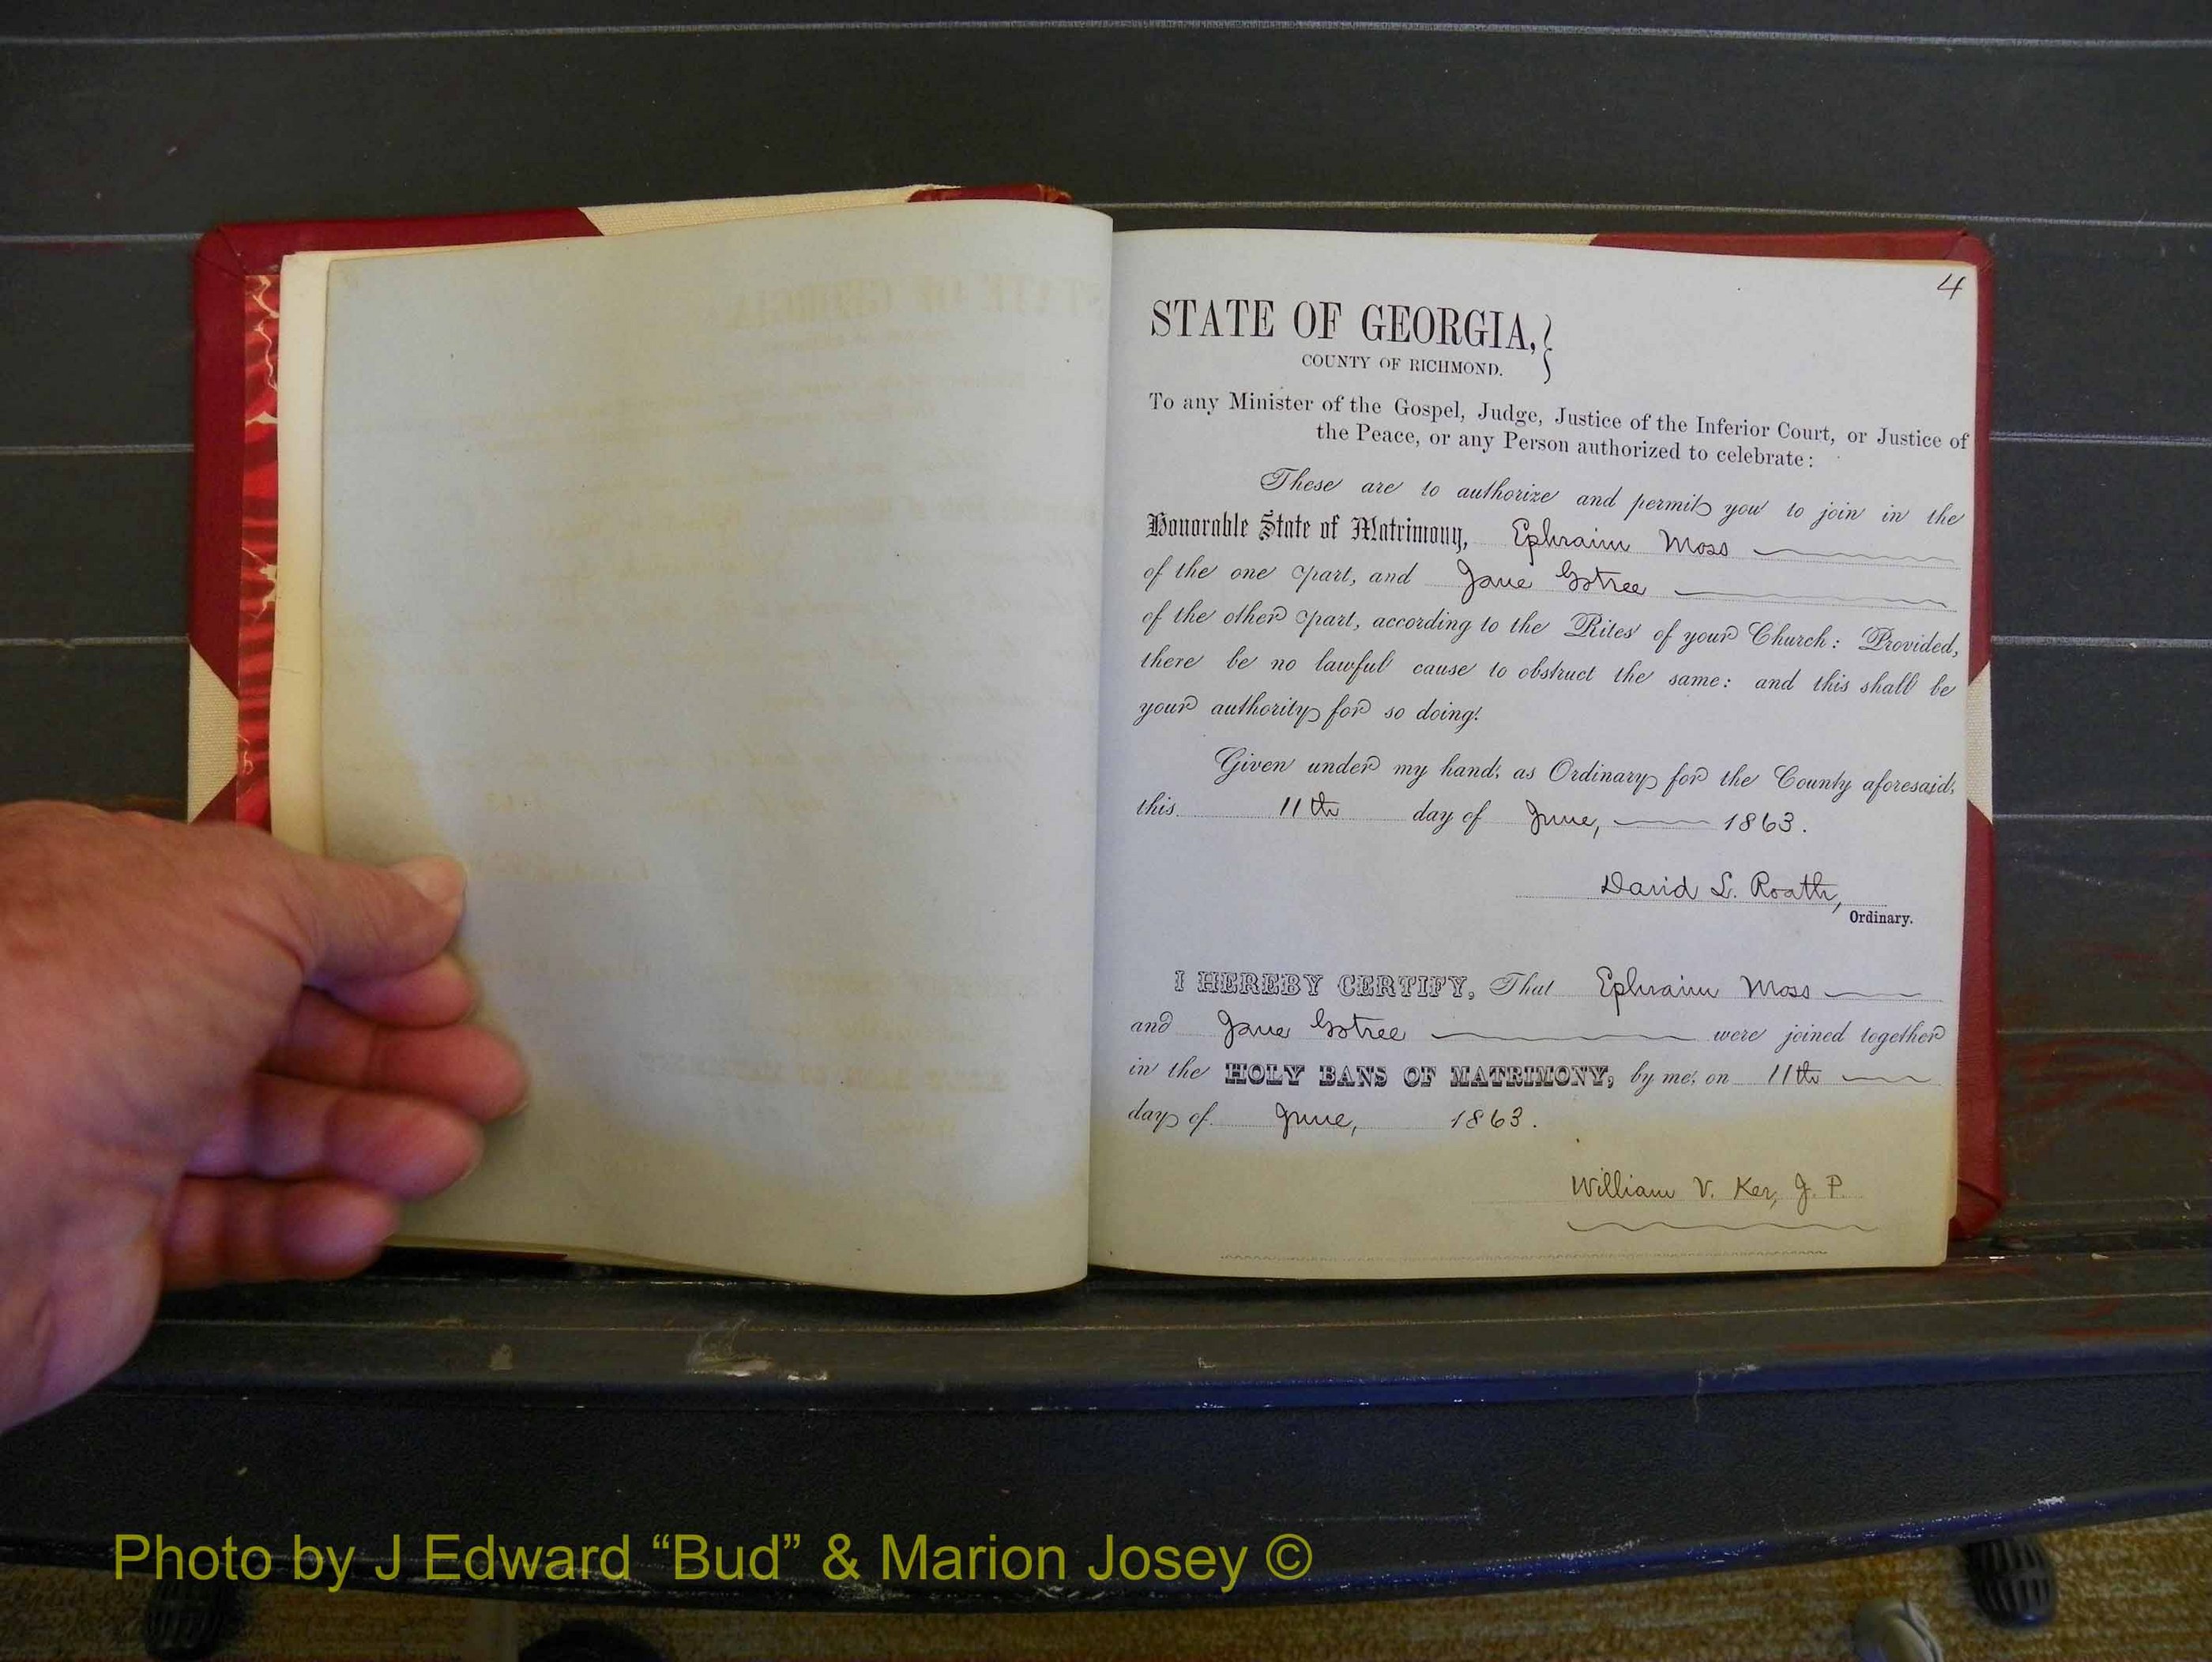 4
STATE OF GEORGIA,
COUNTY OF RICHMOND.
To any Minister of the Gospel, Judge, Justice of the Inferior Court, or Justice of
the Peace, or any Person authorized to celebrate:
These are to authorize and permit you to join in the
Honorable State of Matrimony, Ephraim Moss
of the one part, and Jane
of the other part, according to the Rites of your Church: Provided,
there be no lawful cause to obstruct the same: and this shall be
your authority for so doing.
Given under my hand, as Ordinary for the County aforesaid,
this 11th day of June, 1863.
David L. Roath,
Ordinary.
I HEREBY CERTIFY, That Ephraim Moss
and Jane were joined together
in the HOLY BANS OF MATRIMONY, by me, on 11th
day of June, 1863.
William V. Ker, J. P.
Photo by J Edward “Bud” & Marion Josey ©